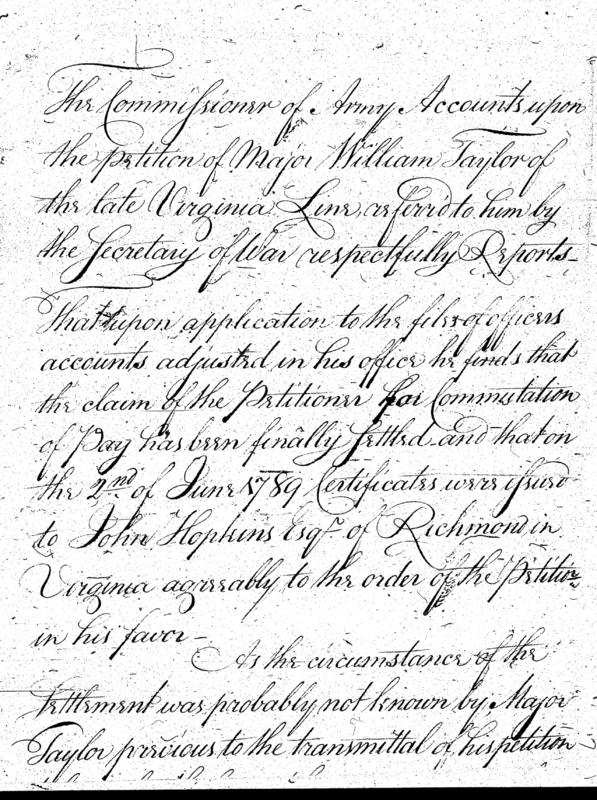 The Commissioner of Army Accounts upon
the petition of Major William Taylor of
the late Virginia Line, referrd to him by
the Secretary of War respectfully Reports—
That upon application to the files of officers
accounts adjusted in his office he finds that
the claim of the Petitioner for Commutation
of Pay has been finally settled and that on
the 2nd of June 1789 Certificates were issued
to John Hopkins Esqr of Richmond in
Virginia agreeably to the order of the Petitior
in his favor—
As the circumstance of the
settlement was probably not known by Major
Taylor previous to the transmittal of his petition